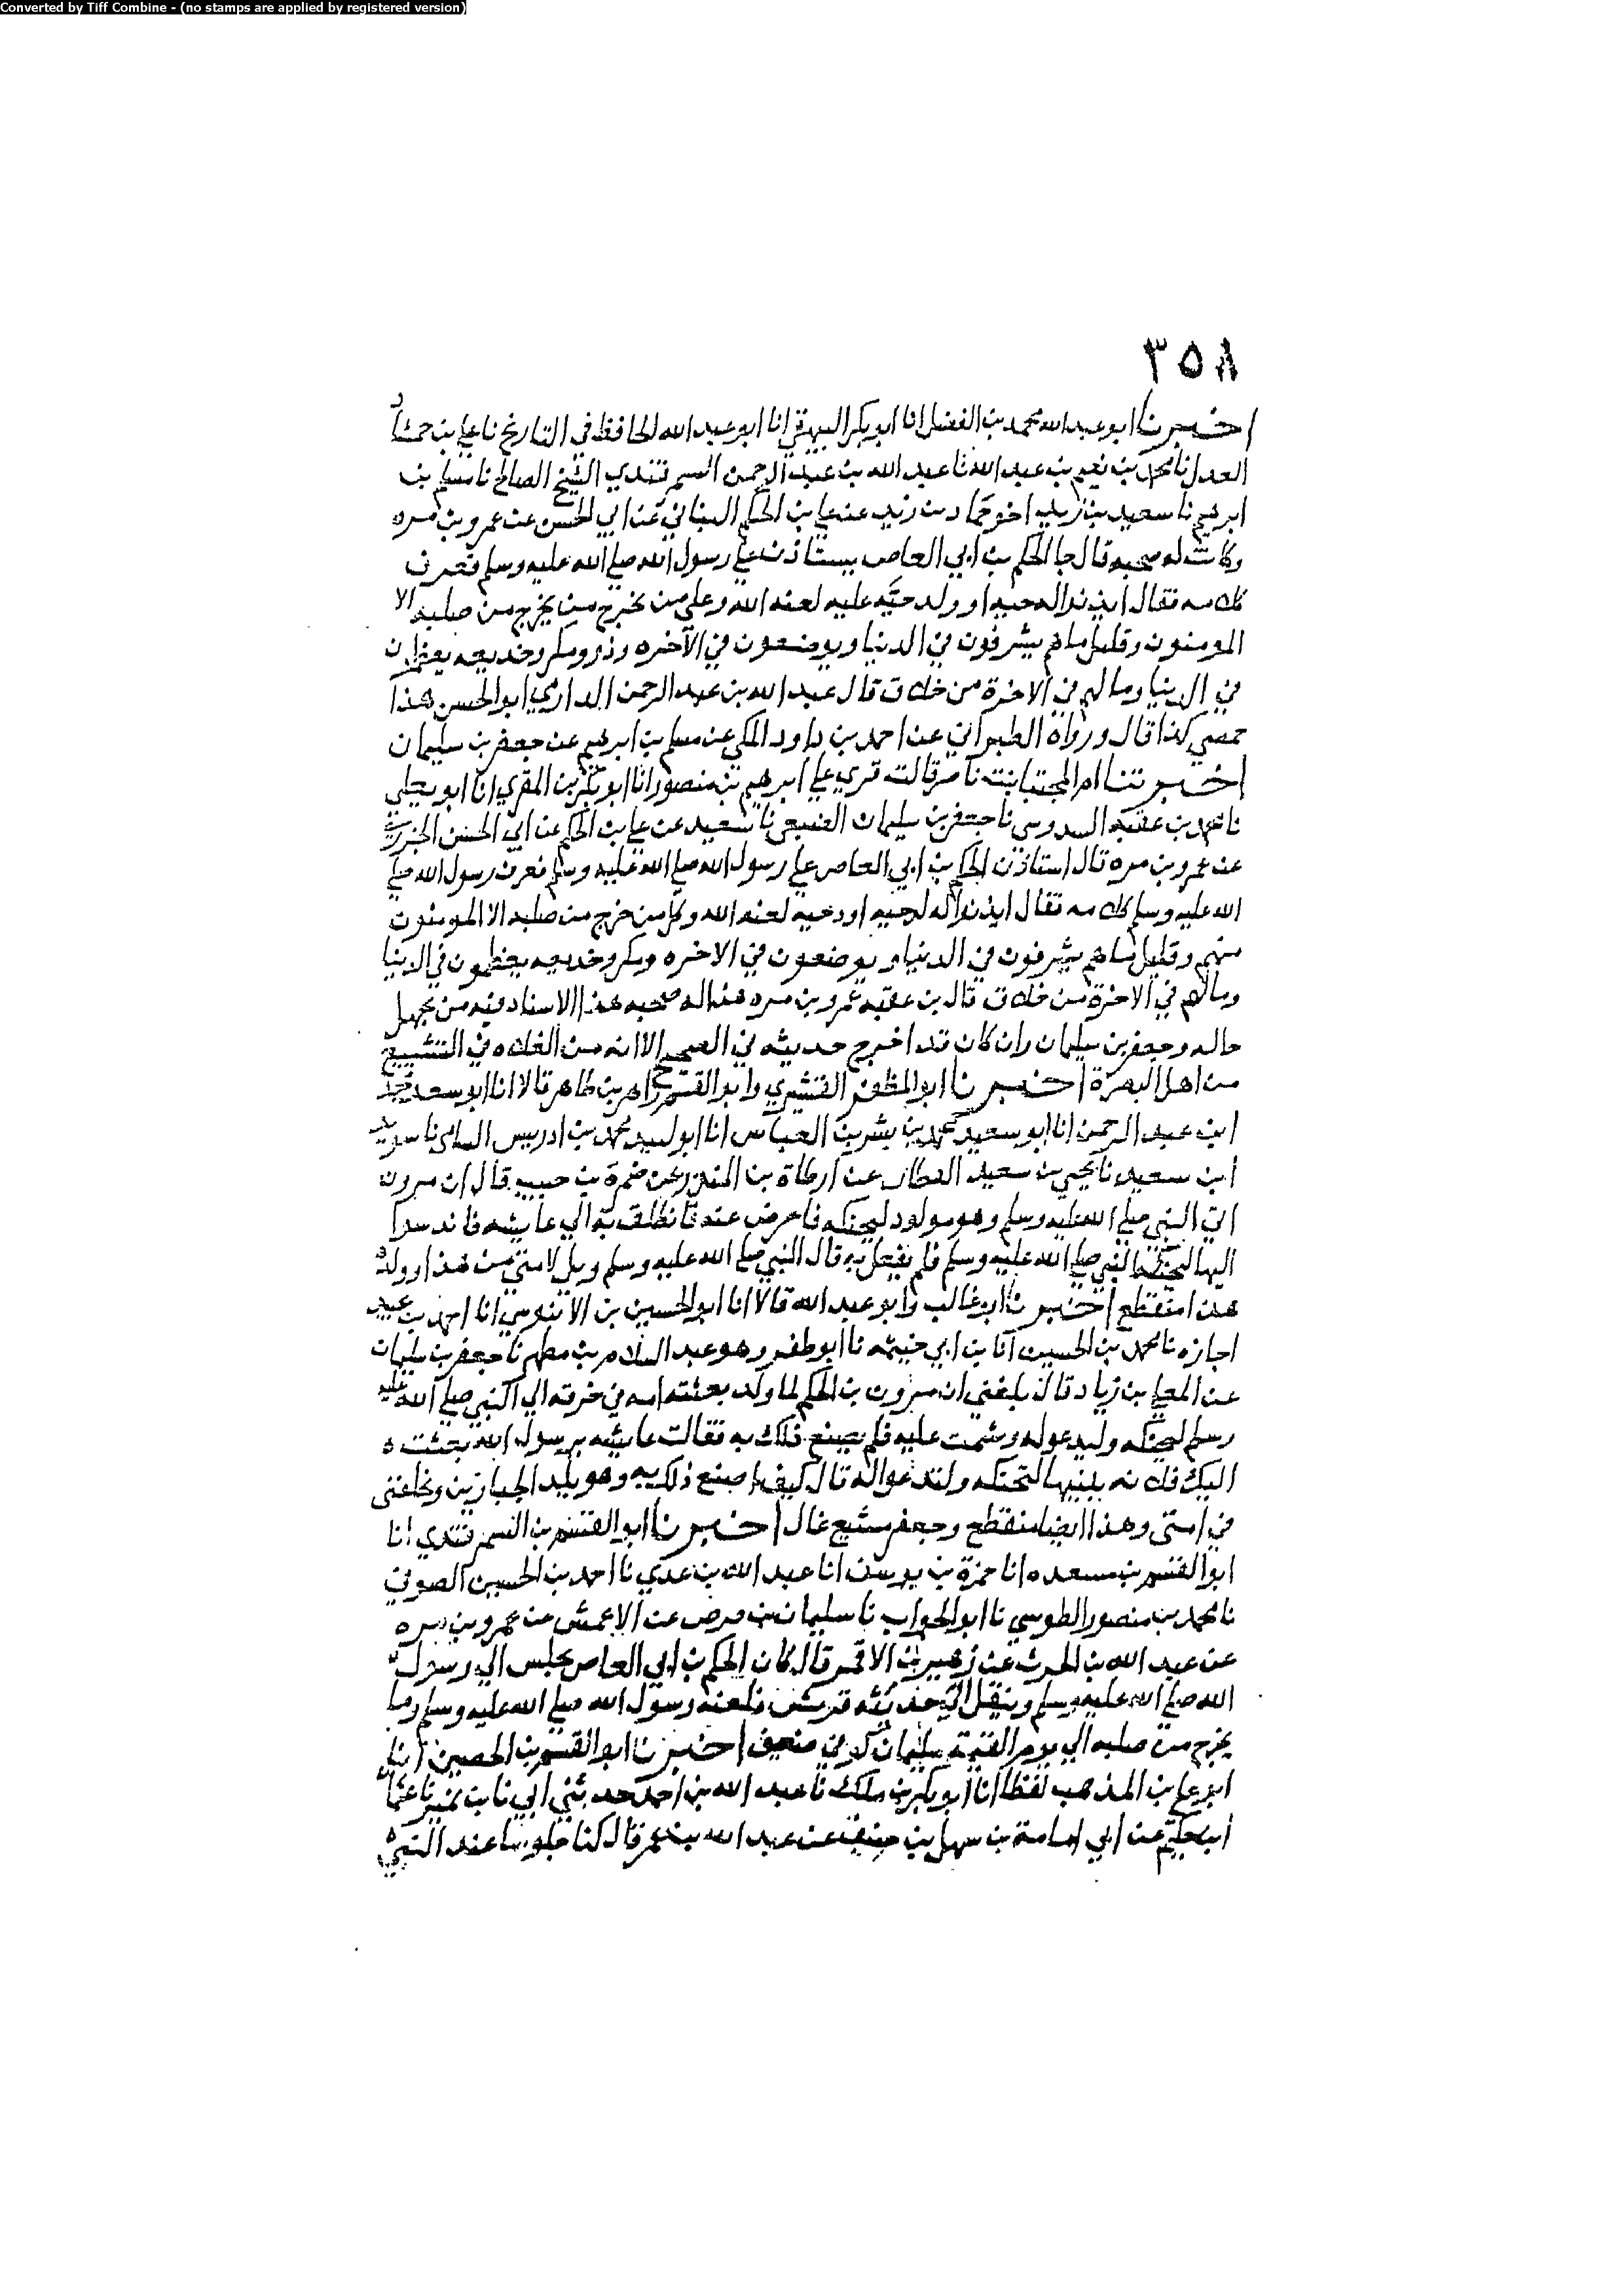 Converted by Tiff Combine - (no stamps are applied by registered version)
٣٥٨
اخبرنا ابو عبد الله محمد بن الفضل انا ابو بكر البيهقي انا ابو عبد الله الحافظ في التاريخ نا علي بن حمشاد
العدل نا محمد بن نعيم بن عبد الله نا عبد الله بن عبد الرحمن السمرقندي الشيخ الصالح نا مسلم بن
ابرهيم نا سعيد بن زيد اخو حماد بن زيد عن علي بن الحكم البناني عن ابي الحسن عن عمرو بن مره
وكانت له صحبه قال جا الحكم بن ابي العاص يستاذن علي رسول الله صلي الله عليه وسلم فعرف
كلامه فقال ايذنوا له حيه او ولد حيه عليه لعنه الله وعلي من يخرج من صلبه الا
المومنون وقليل ما هم يشرفون في الدنيا ويوضعون في الآخره وذوو مكر وخديعه يعظمون
في الدنيا وما لهم في الاخرة من خلاق قال عبد الله بن عبد الرحمن الدارمي ابو الحسن هذا
حمصي كذا قال ورواه الطبراني عن احمد بن داود المكي عن مسلم بن ابرهيم عن جعفر بن سليمان
اخبرتنا ام المجتبا بنت ناصر قالت قري علي ابرهيم بن منصور انا ابو بكر بن المقري انا ابو يعلي
نا محمد بن عقبه السدوسي نا جعفر بن سليمان الضبعي نا سعيد عن علي بن الحكم عن ابي الحسن الجزري
عن عمرو بن مره قال استاذن الحكم بن ابي العاص علي رسول الله صلي الله عليه وسلم فعرف رسول الله صلي
الله عليه وسلم كلامه فقال ايذنوا له لعنه الله وكل من خرج من صلبه الا المومنون
منهم وقليل ما هم يشرفون في الدنيا ويوضعون في الاخره ومكر وخديعه يعظمون في الدنيا
وما لهم في الاخرة من خلاق قال بن عقبه عمرو بن مره هذا له صحبه هذا الاسناد فيه من يجهل
حاله وجعفر بن سليمان وان كان قد اخرج حديثه في الصحيح الا انه من الغلاه في التشيع
من اهل البصرة اخبرنا ابو المظفر القشيري وابو القسم زاهر بن طاهر قالا انا ابو سعد محمد
ابن عبد الرحمن انا ابو سعيد محمد بن بشر بن العباس انا ابو لبيد محمد بن ادريس السامي نا سويد
ابن سعيد نا يحيي بن سعيد العطار عن ارطاة بن المنذر عن ضمرة بن حبيب قال ان مرون
اتي النبي صلي الله عليه وسلم وهو مولود ليحنكه فاعرض عنه فانطلق به الي عايشه
اليها النبي صلي الله عليه وسلم فلم يفعل به قال النبي صلي الله عليه وسلم ويل لامتي من هذا وولد
هذا منقطع اخبرنا ابو غالب وابو عبد الله قالا انا ابو الحسين بن الابنوسي انا احمد بن عبيد
اجازه نا محمد بن الحسين انا بن ابي خيثمه نا ابو ظفر وهو عبد السلام بن مطهر نا جعفر بن سليمان
عن المعلي بن زياد قال بلغني ان مرون بن الحكم لما ولد بعثته امه في خرقه الي النبي صلي الله عليه
وسلم ليحنكه وليدعو له وسمت عليه فلم يصنع ذلك به فقالت عايشه يرسول الله بعثت
اليك فلانه بابنها لتحنكه ولتدعوا له قال كيف اصنع ذلك به وهو يلد الجبارين ويخلفني
في امتي وهذا ايضا منقطع وجعفر متشيع غال اخبرنا ابو القسم بن السمرقندي انا
ابو القسم بن مسعده انا حمزة بن يوسف انا عبد الله بن عدي نا احمد بن الحسين الصوفي
نا محمد بن منصور الطوسي نا ابو الجواب نا سليمان بن قرم عن الاعمش عن عمرو بن مره
عن عبد الله بن الحرث عن زهير بن الاقمر قال كان الحكم بن ابي العاص يجلس الي رسول
الله صلي الله عليه وسلم وينقل حديثه قريش فلعنه رسول الله صلي الله عليه وسلم وما
يخرج من صلبه الي يوم القيمة سليمان كوفي ضعيف اخبرنا ابو القسم بن الحصين انا
ابو علي بن المذهب لفظا انا ابو بكر بن ملك نا عبد الله بن احمد حدثني ابي نا بن نمير نا عثمان
ابن حكيم عن ابي امامة بن سهل بن حنيف عن عبد الله بن عمر قال كنا جلوسا عند النبي